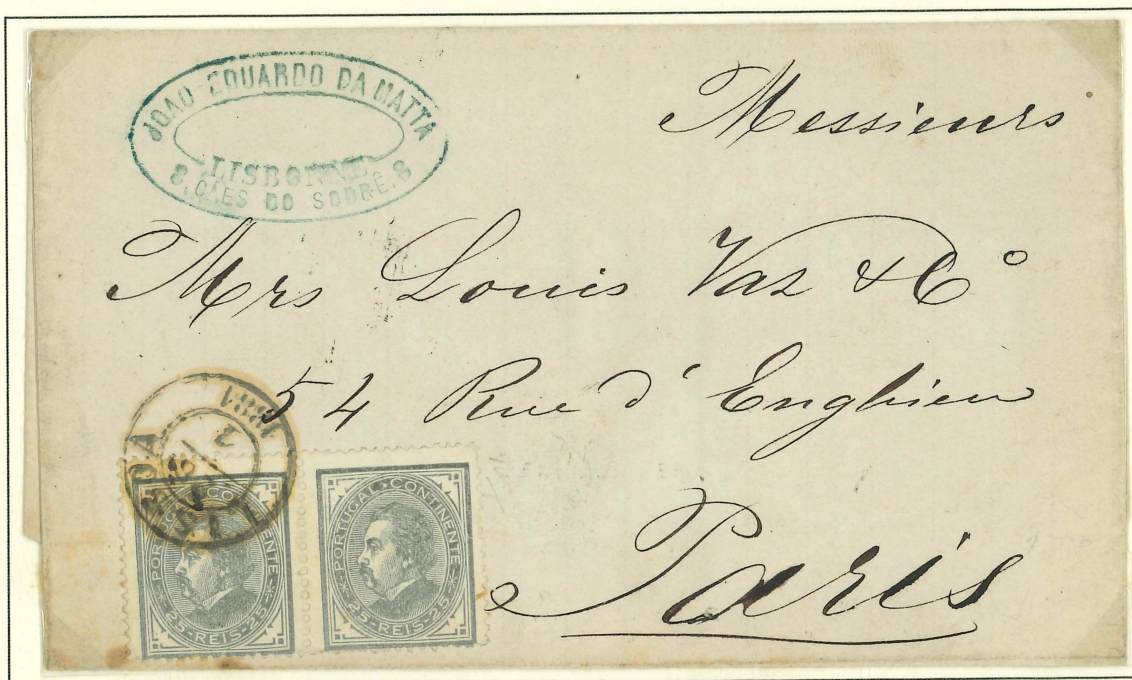 JOAO EDUARDO DA MATTA
LISBONNE
8. CAES DO SODRÉ. 8
Messieurs
Mrs Louis Vaz & Cº
54 Rue d'Enghien
Paris
LISBOA
1881
PORTUGAL CONTINENTE
25-REIS-25
PORTUGAL CONTINENTE
25-REIS-25